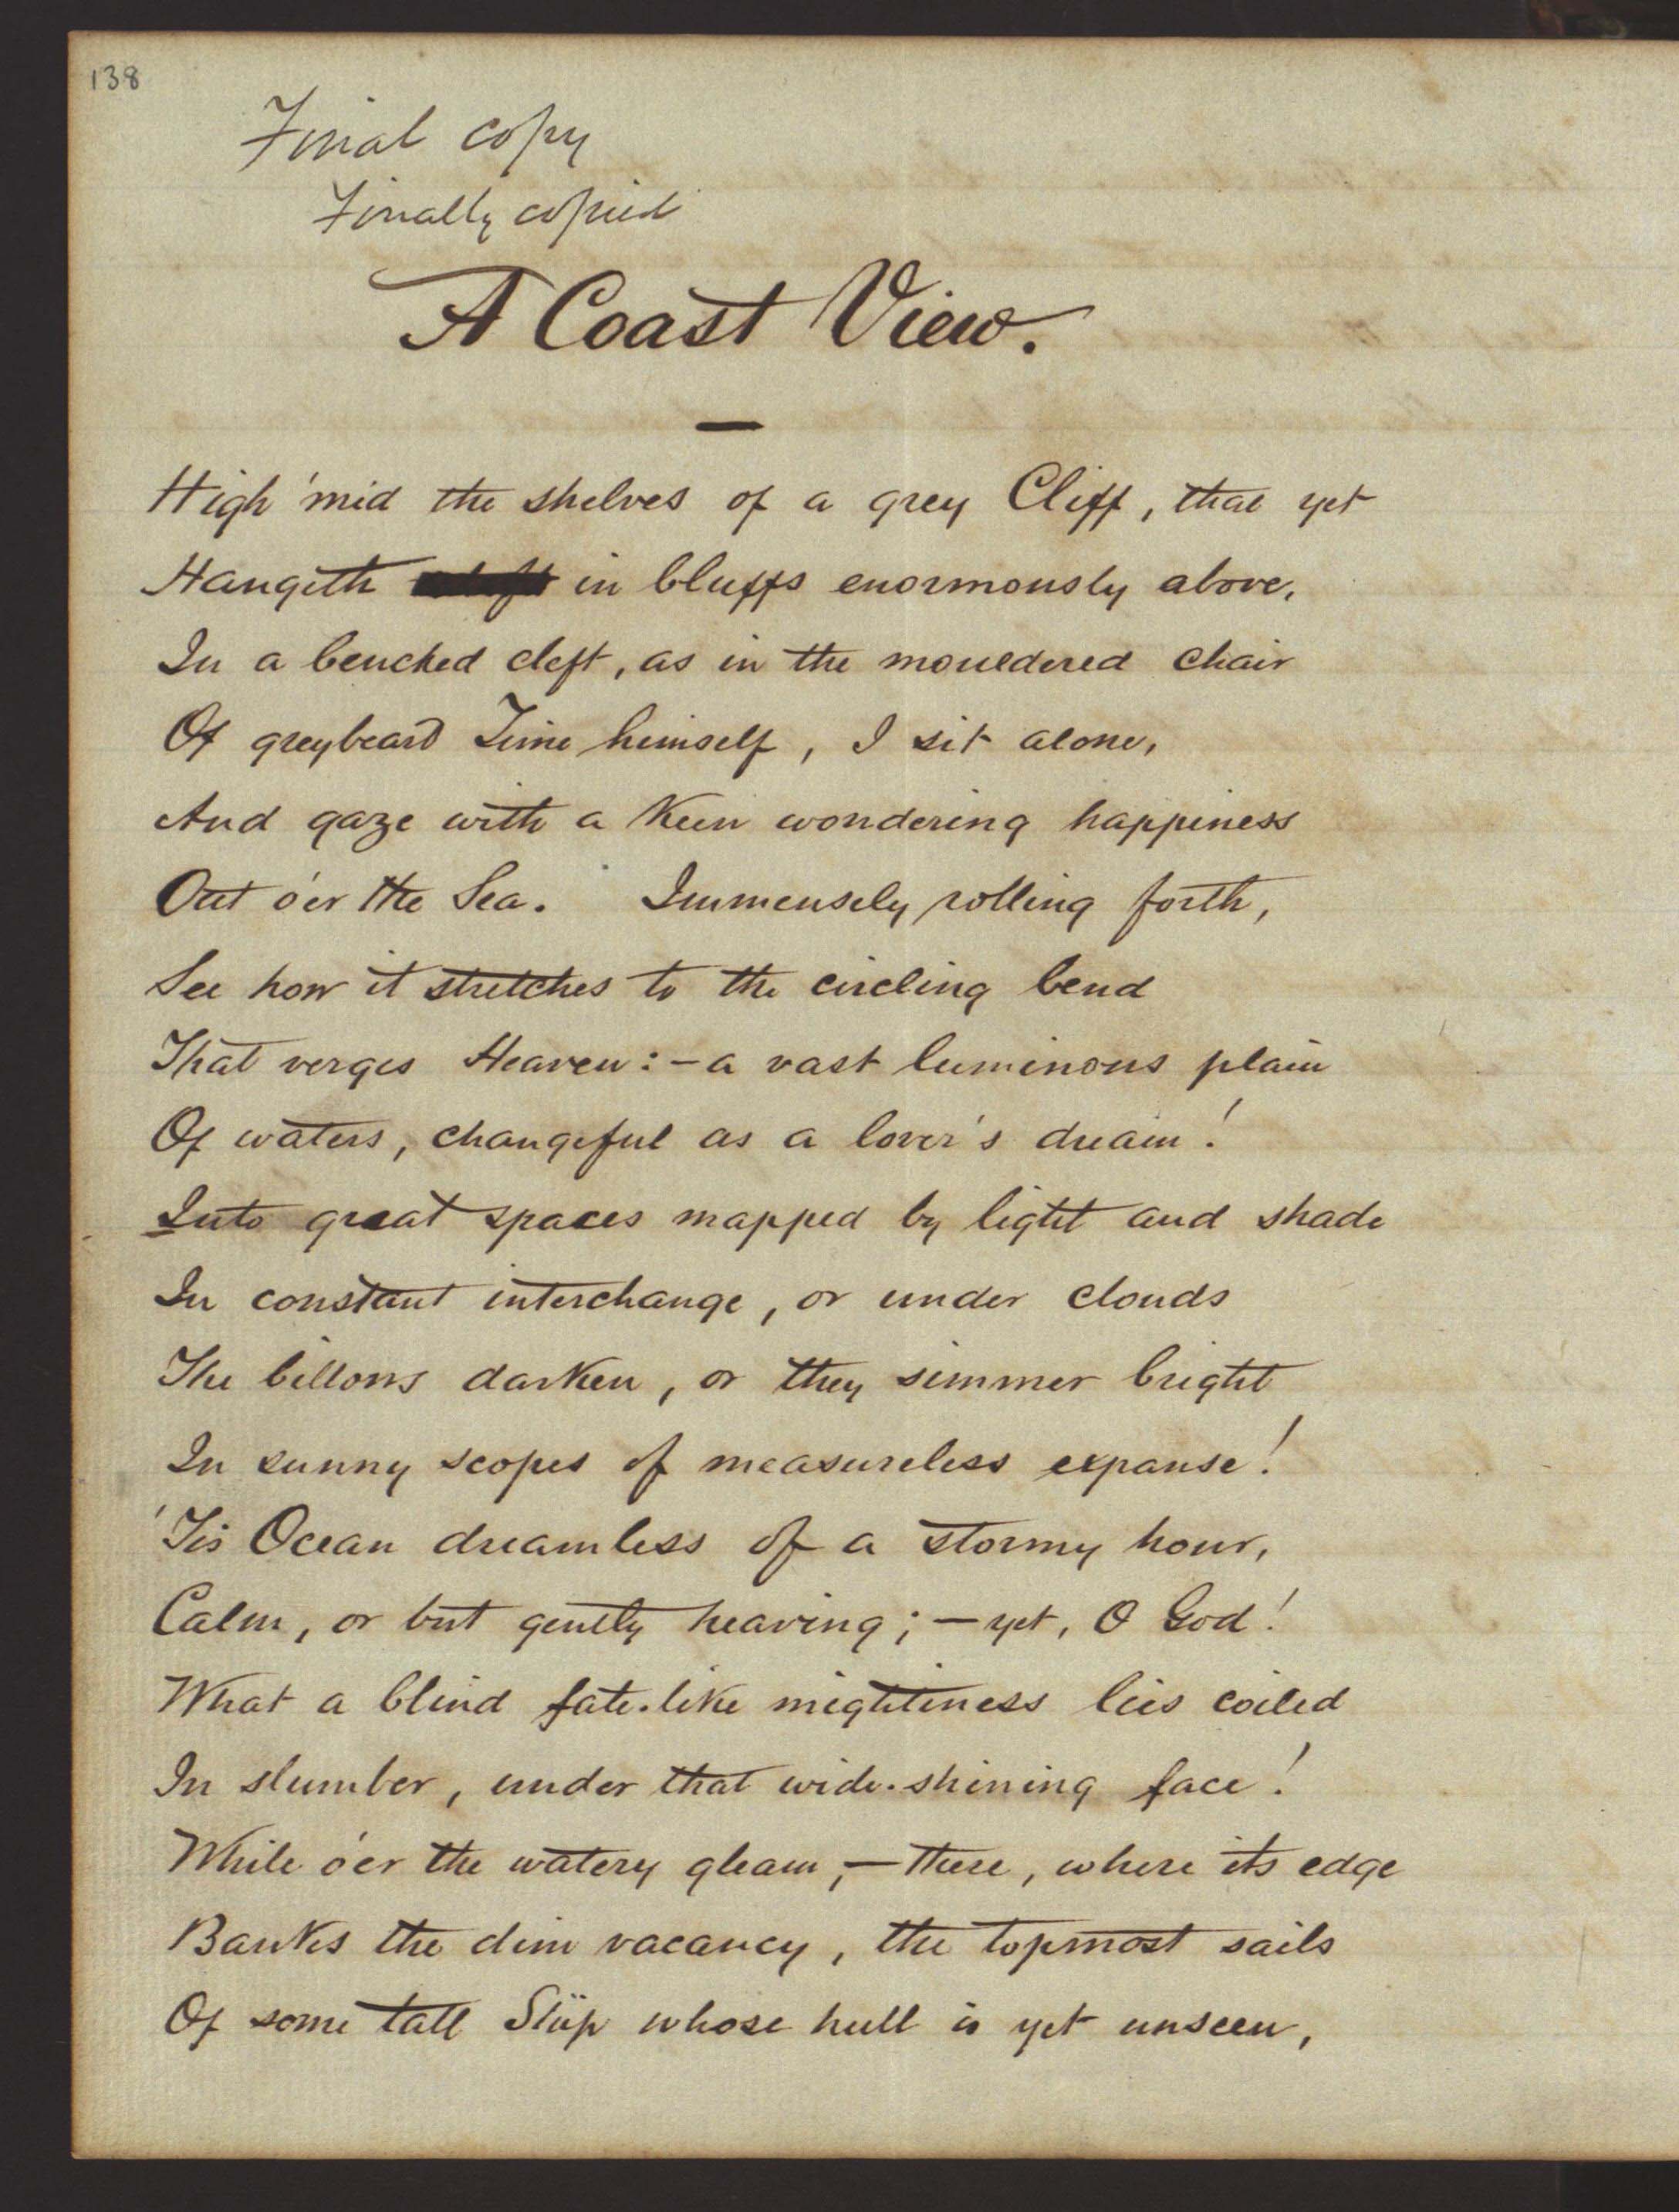 138
Final copy
Finally copied
A Coast View.
High 'mid the shelves of a grey Cliff, that yet
Hangeth in bluffs enormously above,
In a benched cleft, as in the mouldered chair
Of greybeard Time himself, I sit alone,
And gaze with a keen wondering happiness
Out o'er the Sea. Immensely rolling forth,
See how it stretches to the circling bend
That verges Heaven:—a vast luminous plain
Of waters, changeful as a lover's dream!
Into great spaces mapped by light and shade
In constant interchange, or under clouds
The billows darken, or they simmer bright
In sunny scopes of measureless expanse!
'Tis Ocean dreamless of a stormy hour,
Calm, or but gently heaving;—yet, O God!
What a blind fate-like mightiness lies coiled
In slumber, under that wide-shining face!
While o'er the watery gleam,—there, where its edge
Banks the dim vacancy, the topmost sails
Of some tall Ship whose hull is yet unseen,